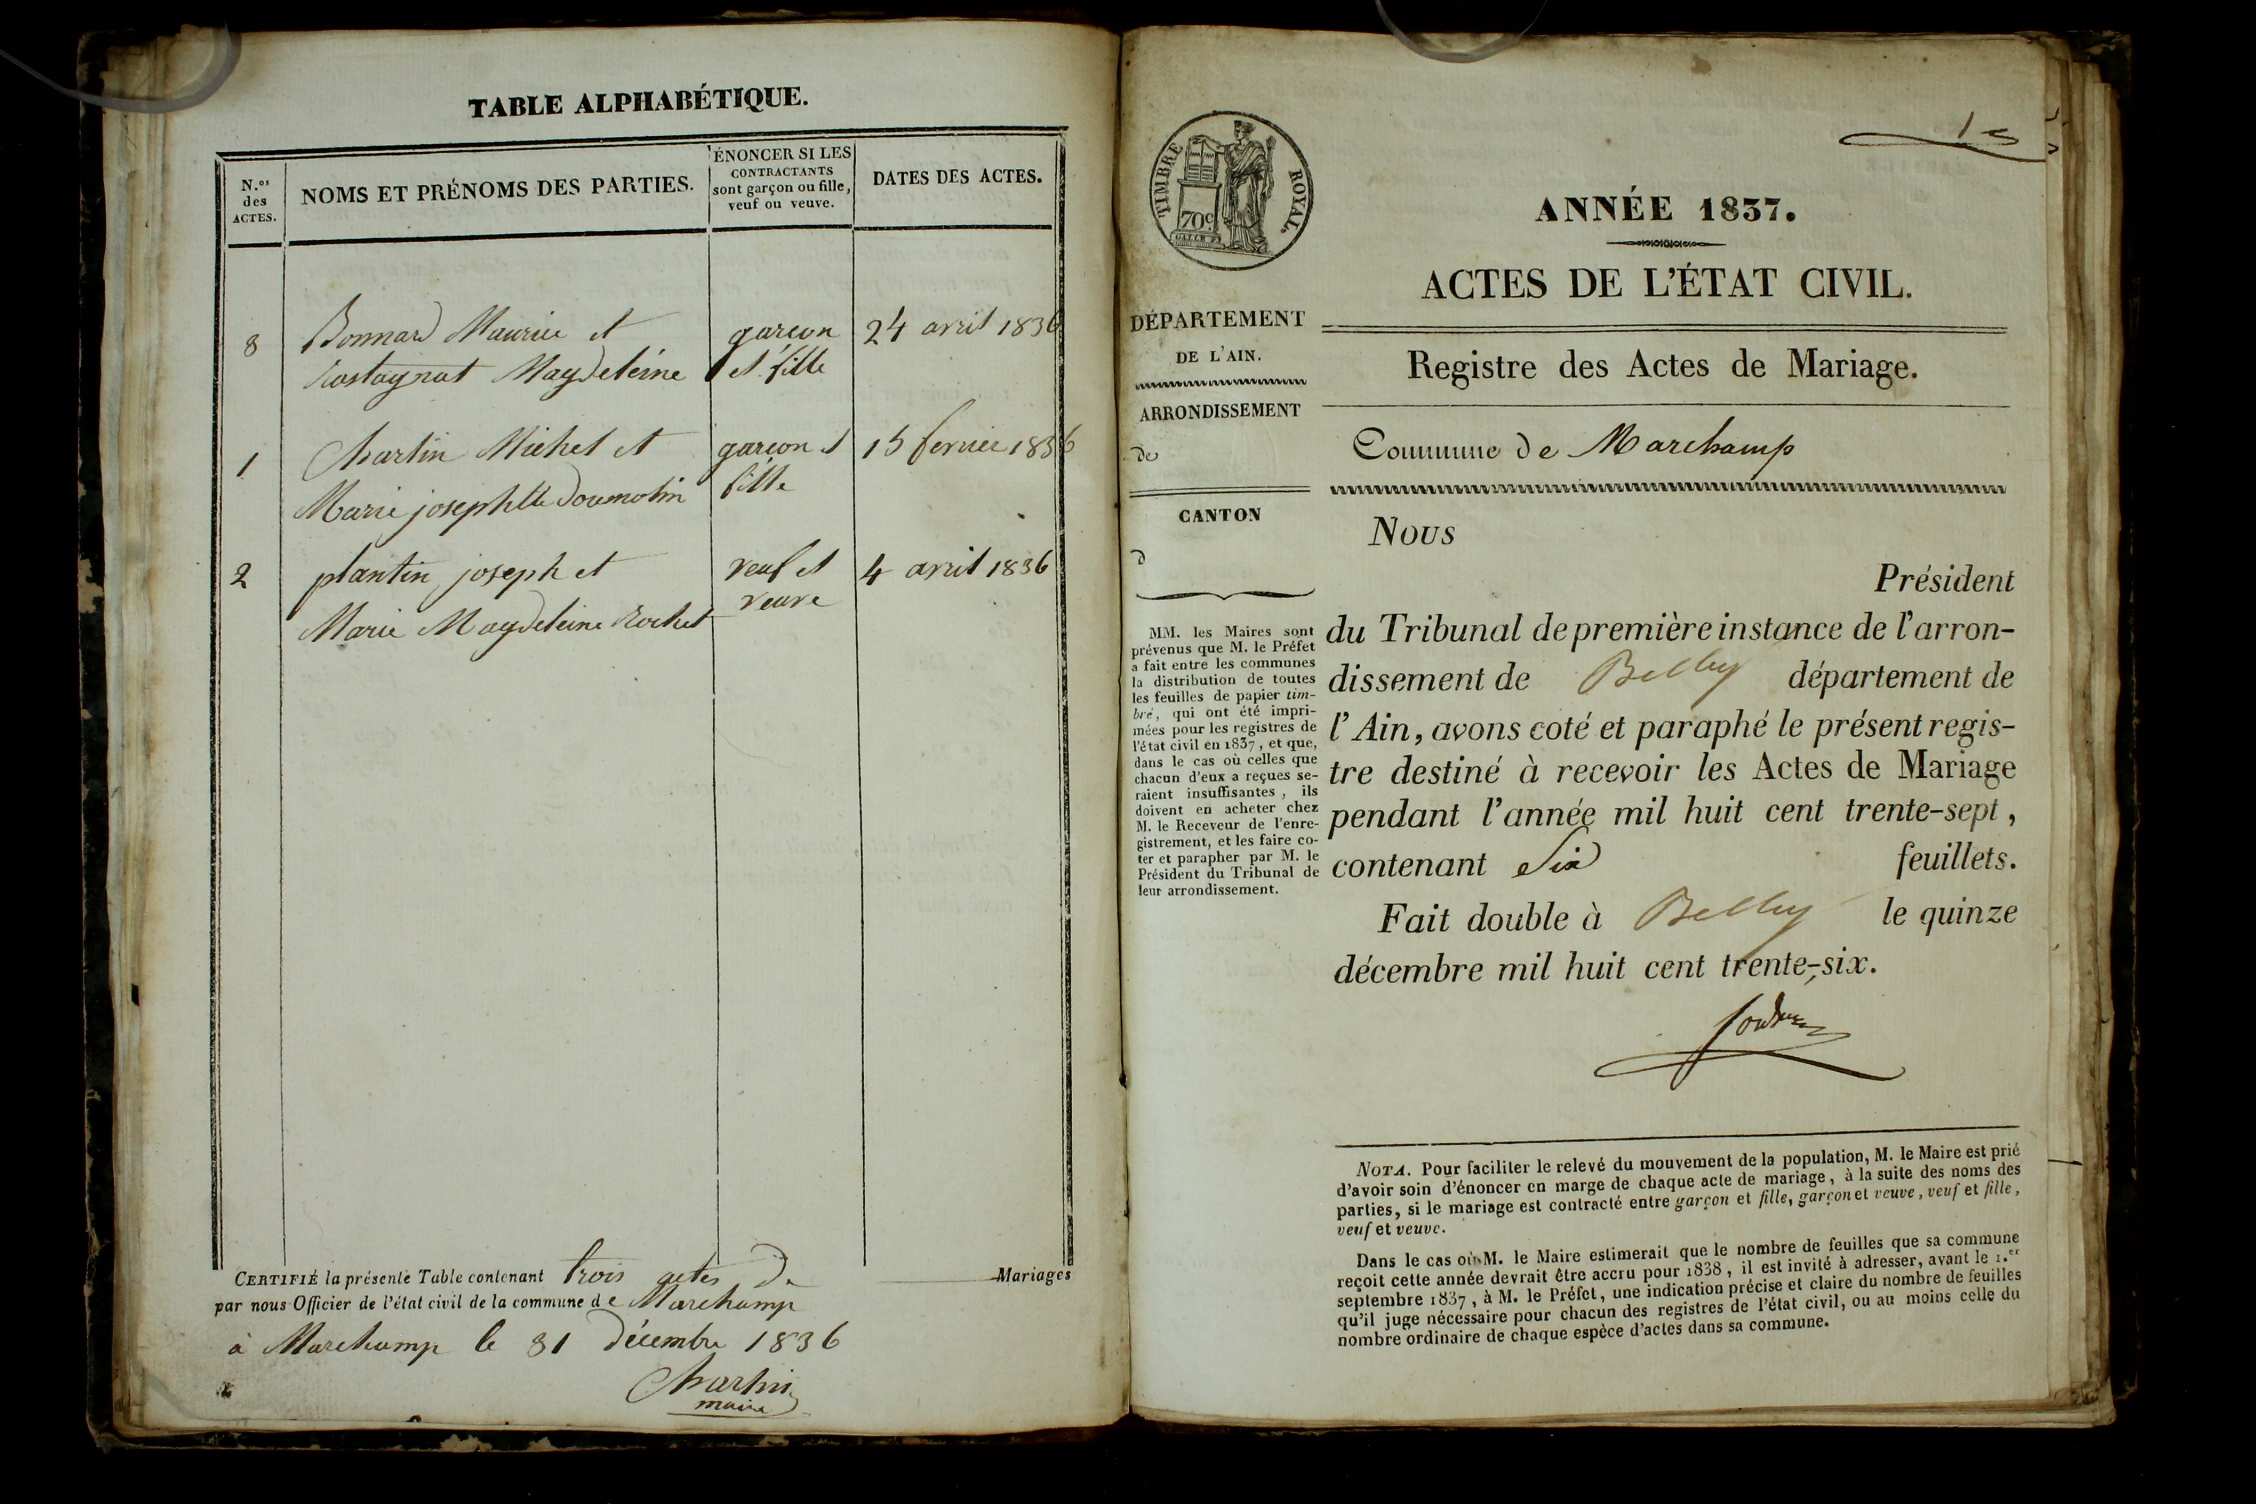 TABLE ALPHABÉTIQUE.
N.os des ACTES.
NOMS ET PRÉNOMS DES PARTIES.
ÉNONCER SI LES
CONTRACTANTS
sont garçon ou fille,
veuf ou veuve.
DATES DES ACTES.
3 Bonnard Maurice et garçon 24 avril 1836
Magdeleine et fille
1 Charlin Michel et garçon et 15 fevrier 1836
Marie josephtte Doumolin fille
2 plantin joseph et veuf et 4 avril 1836
Marie Magdeleine Rochet veuve
CERTIFIÉ la présente Table contenant trois actes de Mariages
par nous Officier de l'état civil de la commune de Marchamp
à Marchamp le 31 décembre 1836
Charlin
maire
1er
TIMBRE ROYAL.
70c
ANNÉE 1837.
ACTES DE L'ÉTAT CIVIL.
DÉPARTEMENT
DE L'AIN.
ARRONDISSEMENT
de
CANTON
d
MM. les Maires sont
prévenus que M. le Préfet
a fait entre les communes
la distribution de toutes
les feuilles de papier tim-
bré, qui ont été impri-
mées pour les registres de
l'état civil en 1837, et que,
dans le cas où celles que
chacun d'eux a reçues se-
raient insuffisantes, ils
doivent en acheter chez
M. le Receveur de l'enre-
gistrement, et les faire co-
ter et parapher par M. le
Président du Tribunal de
leur arrondissement.
Registre des Actes de Mariage.
Commune de Marchamp
Nous
Président
du Tribunal de première instance de l'arron-
dissement de Belley département de
l'Ain, avons coté et paraphé le présent regis-
tre destiné à recevoir les Actes de Mariage
pendant l'année mil huit cent trente-sept,
contenant Six feuillets.
Fait double à Belley le quinze
décembre mil huit cent trente-six.
NOTA. Pour faciliter le relevé du mouvement de la population, M. le Maire est prié
d'avoir soin d'énoncer en marge de chaque acte de mariage, à la suite des noms des
parties, si le mariage est contracté entre garçon et fille, garçon et veuve, veuf et fille,
veuf et veuve.
Dans le cas où M. le Maire estimerait que le nombre de feuilles que sa commune
reçoit cette année devrait être accru pour 1838, il est invité à adresser, avant le 1.er
septembre 1837, à M. le Préfet, une indication précise et claire du nombre de feuilles
qu'il juge nécessaire pour chacun des registres de l'état civil, ou au moins celle du
nombre ordinaire de chaque espèce d'actes dans sa commune.